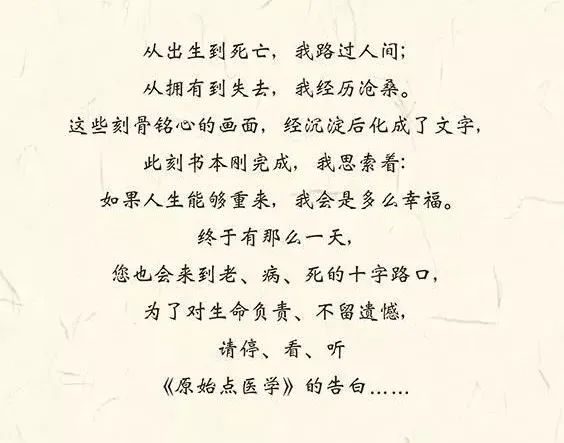 从出生到死亡，我路过人间；
从拥有到失去，我经历沧桑。
这些刻骨铭心的画面，经沉淀后化成了文字，
此刻书本刚完成，我思索着：
如果人生能够重来，我会是多么幸福。
终于有那么一天，
您也会来到老、病、死的十字路口，
为了对生命负责、不留遗憾，
请停、看、听
《原始点医学》的告白……